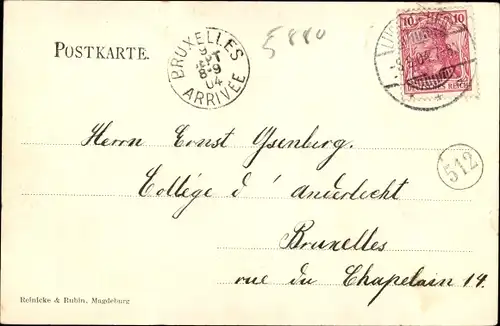 5880
10 10
DEUTSCHES REICH
BRUXELLES
9
SEPT
8-9
04
ARRIVÉE
POSTKARTE.
Herrn Ernst Ysenberg.
Collége d' Anderlecht
512
Bruxelles
rue du Chapelain 14.
Reinicke & Rubin, Magdeburg